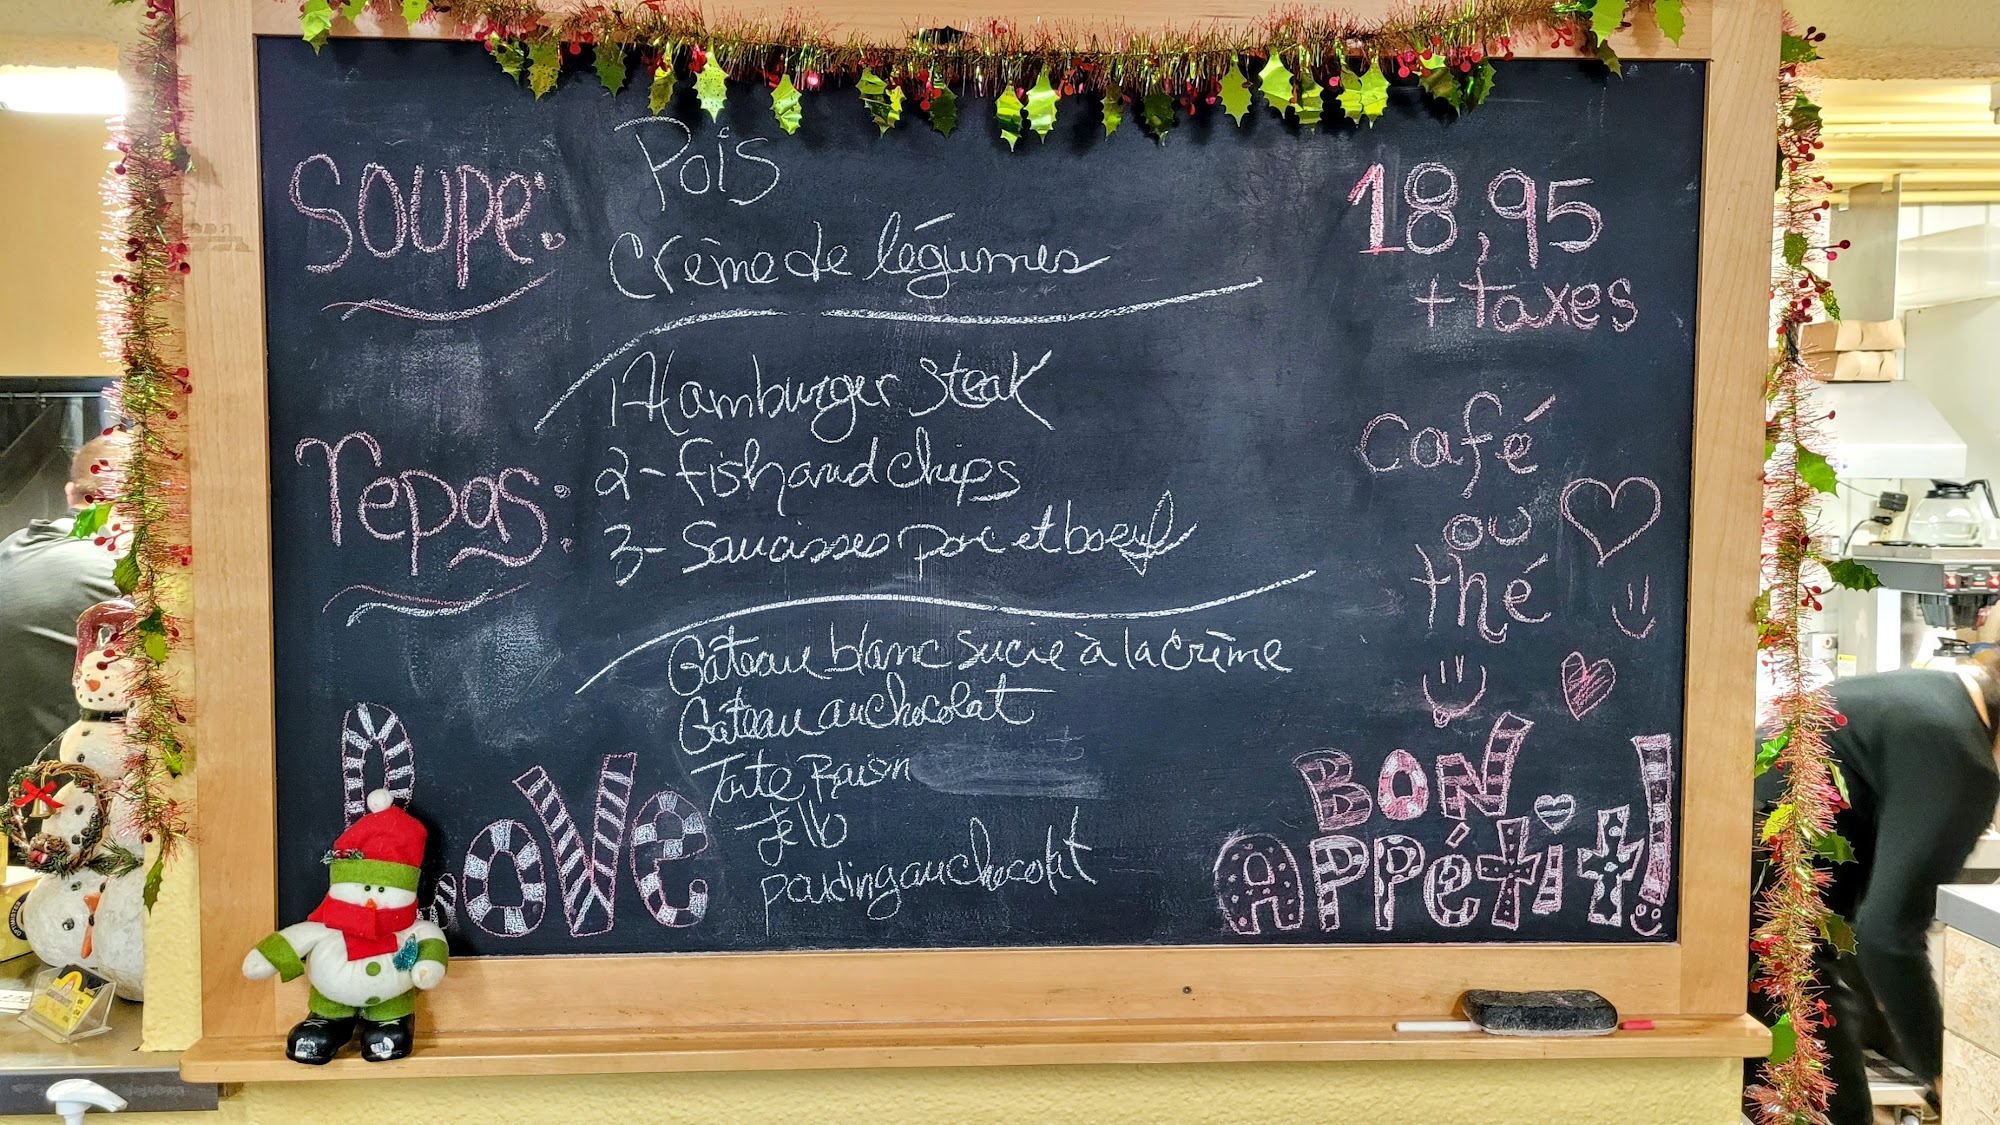 Soupe:
Pois
Crème de légumes
18,95
+ taxes
repas:
1-Hamburger steak
2-fish and chips
3- Saucisses porc et boeuf
café
ou
thé
Gâteau blanc sucre à la crème
Gâteau au chocolat
Tarte Raisin
Jello
pouding au chocolat
Love
BON
APPÉtit!